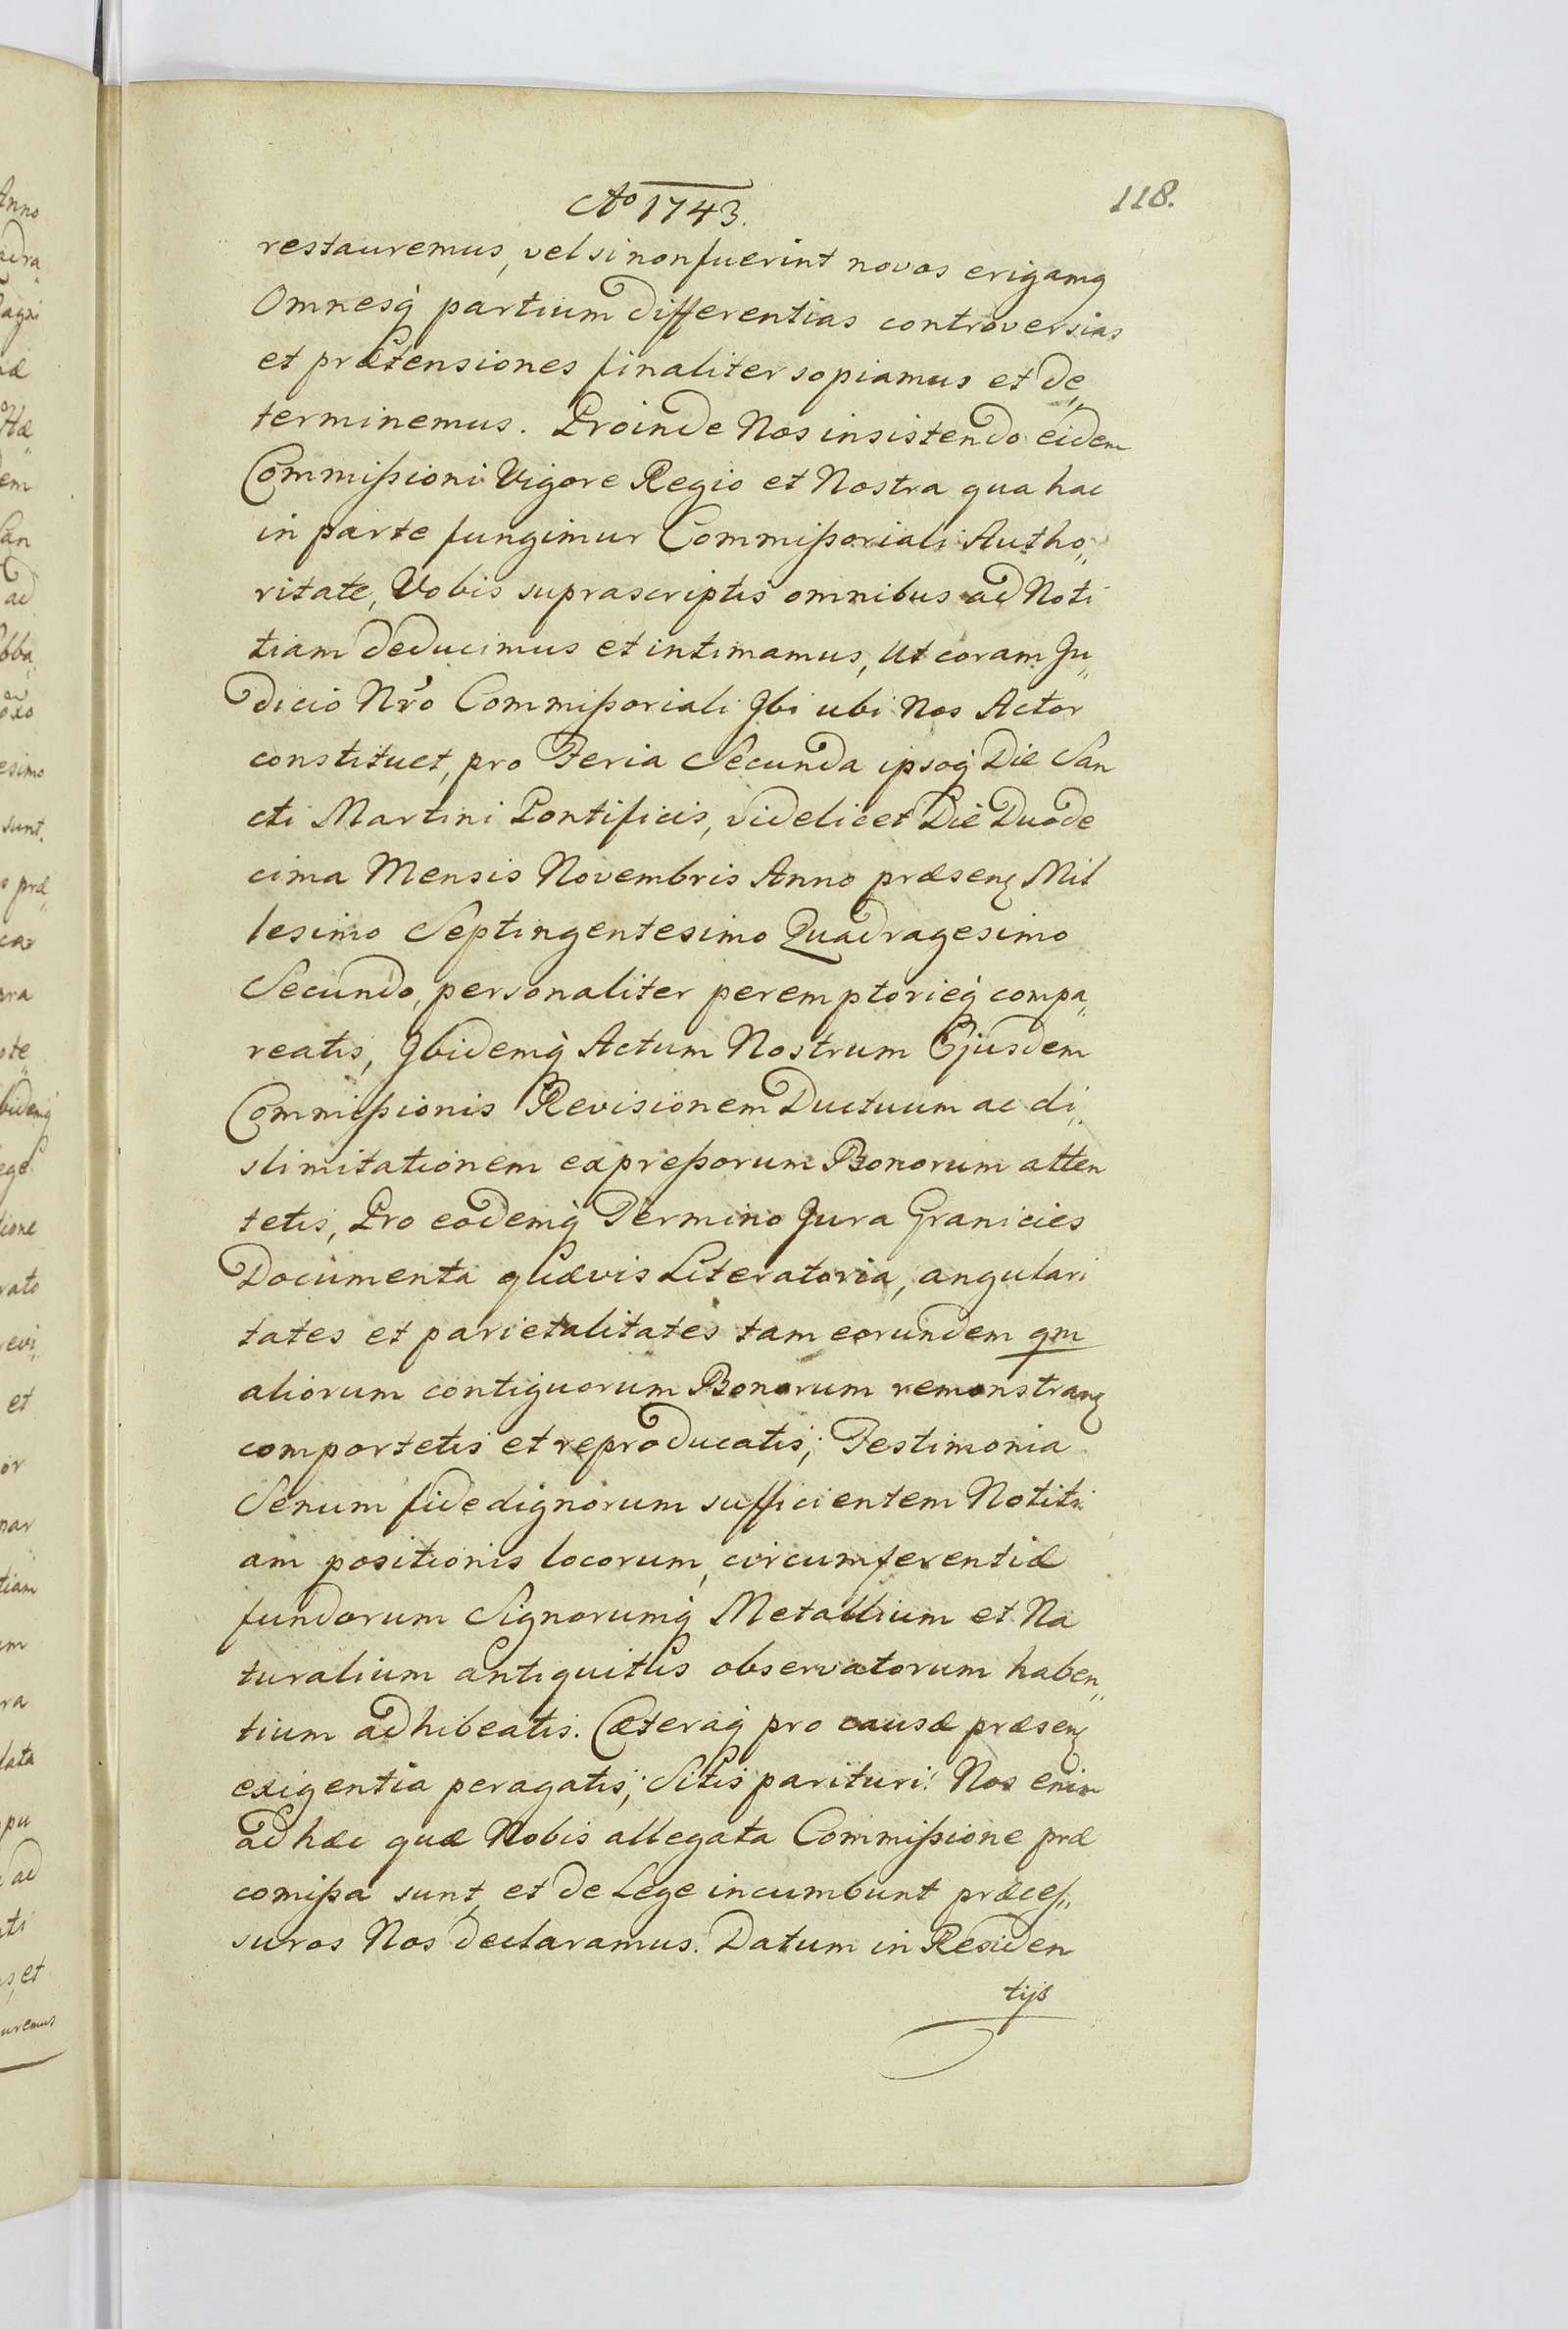 Ao 1743.
118.
restauremus, vel si non fuerint novos erigamq
Omnesq́ partium differentias controversias
et prætensiones finaliter sopiamus et de„
terminemus. Proinde Nos insistendo eidem
Commißioni Vigore Regio et Nostra qua hac
in parte fungimur Commißoriali Autho„
ritate, Vobis suprascriptis omnibus ad Noti
tiam deducimus et intimamus, Ut coram Ju„
dicio Nrō Commißoriali Jbi ubi Nos Actor
constituet, pro Feria Secunda ipsoq́ Die San
cti Martini Pontificis, videlicet Die Duode
cima Mensis Novembris Anno præsenſ Mil
lesimo Septingentesimo Quadragesimo
Secundo, personaliter peremptorieq́ compa„
reatis, Jbidemq́ Actum Nostrum Ejusdem
Commißionis Revisionem Ductuum ac di„
slimitationem expreßorum Bonorum atten
tetis, Pro eodemq́ Termino Jura Granicies
Documenta quævis Literatoria, angulari
tates et parietalitates tam eorundem qm
aliorum contiguorum Bonorum remonstranſ
comportetis et reproducatis; Testimonia
Senum fide dignorum sufficientem Notiti
am positionis locorum, circumferentiæ
fundorum Signorumq́ Metallium et Na
turalium antiquitus observatorum haben„
tium adhibeatis. Cæteraq́ pro causæ præsenſ
exigentia peragatis; Sitis parituri. Nos enim
ad hæc quæ Nobis allegata Commißione præ
comißa sunt, et de Lege incumbunt præceß„
suros Nos declaramus. Datum in Residen
tijs